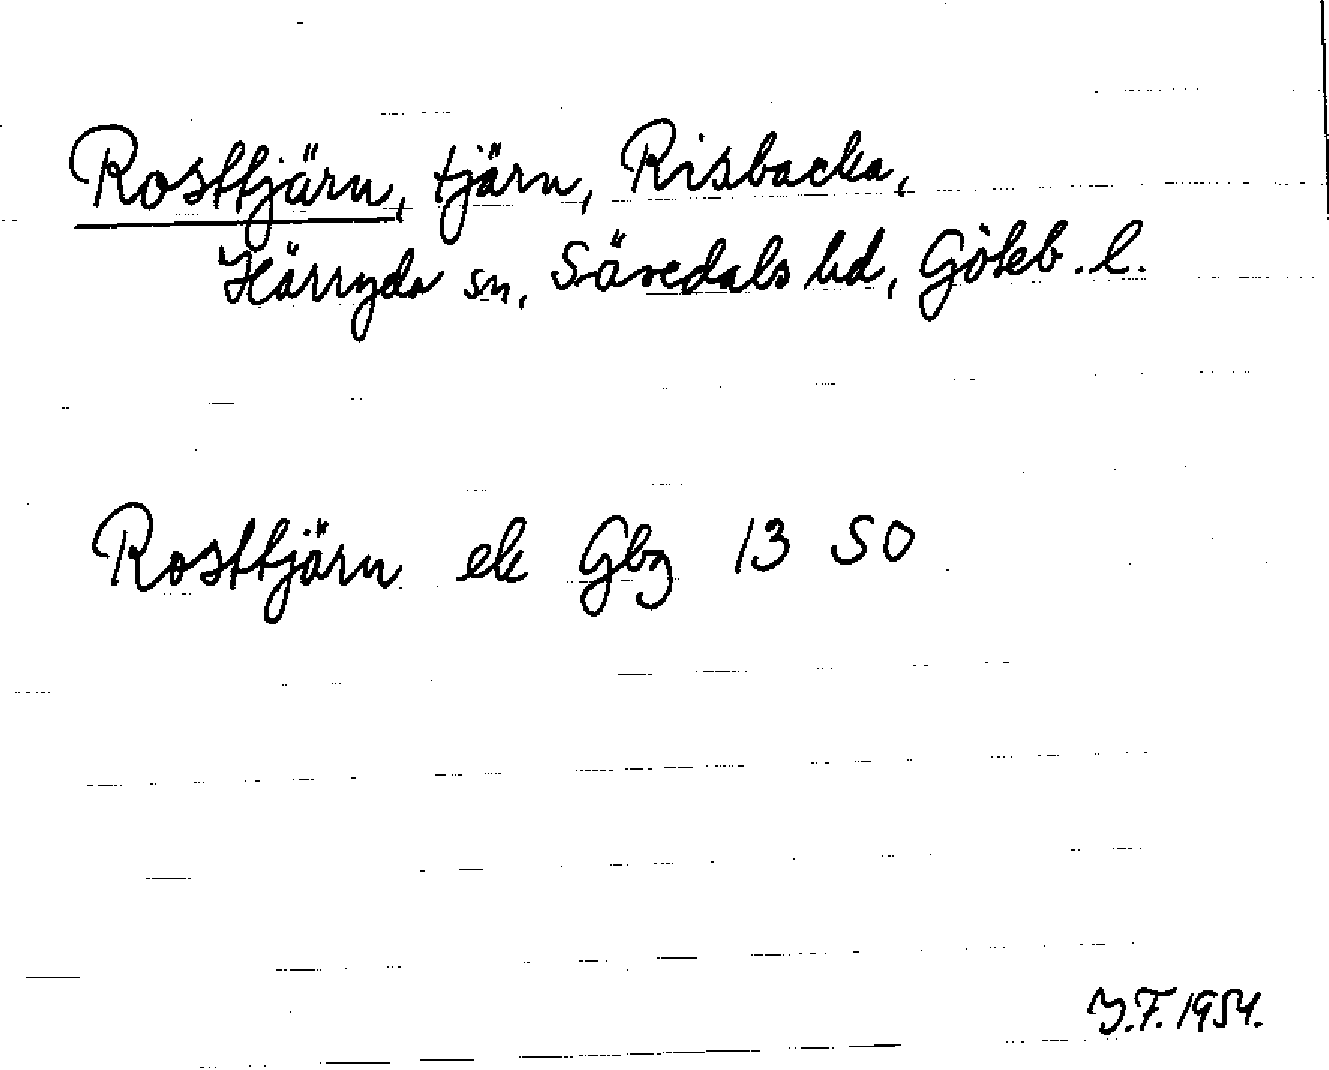 Rosttjärn, tjärn, Risbacka,
Härryda sn, Sävedals hd, Göteb. l.
Rosttjärn ek Gbg 13 SO
Y.F. 1954.